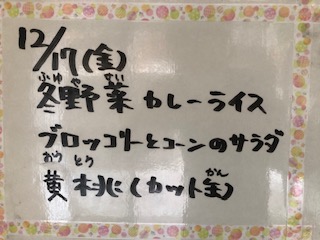 12/17(金)
ふゆ や さい
冬野菜カレーライス
ブロッコリーとコーンのサラダ
おう とう かん
黄桃(カット缶)